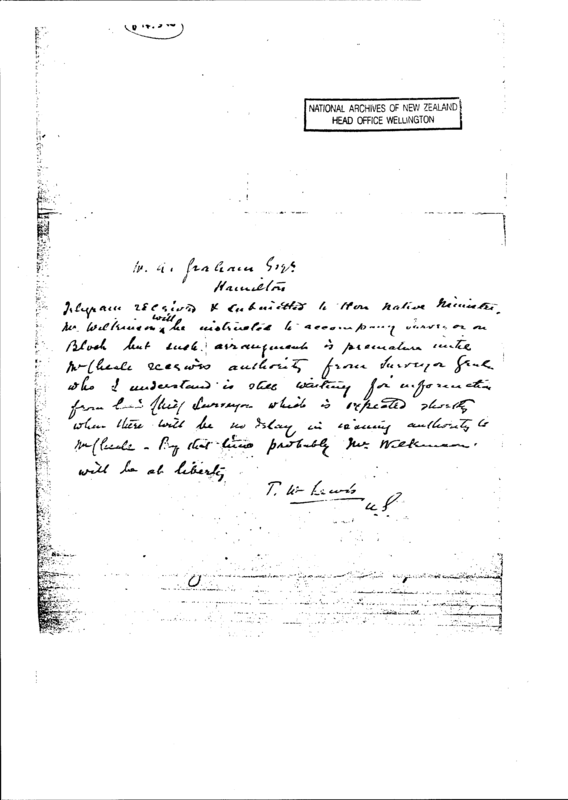 NATIONAL ARCHIVES OF NEW ZEALAND
HEAD OFFICE WELLINGTON
W. A. Graham Esqr
Hamilton
Telegram received & submitted to Hon Native Minister.
Mr Wilkinson will be instructed to accompany surveyor on
Block but such arrangement is premature until
Mr Cheale receives authority from Surveyor Genl.
who I understand is still waiting for information
from Chief Surveyor which is expected shortly
when there will be no delay in issuing authority to
Mr Cheale - By that time probably Mr Wilkinson.
will be at liberty
T. W. Lewis
U.S.